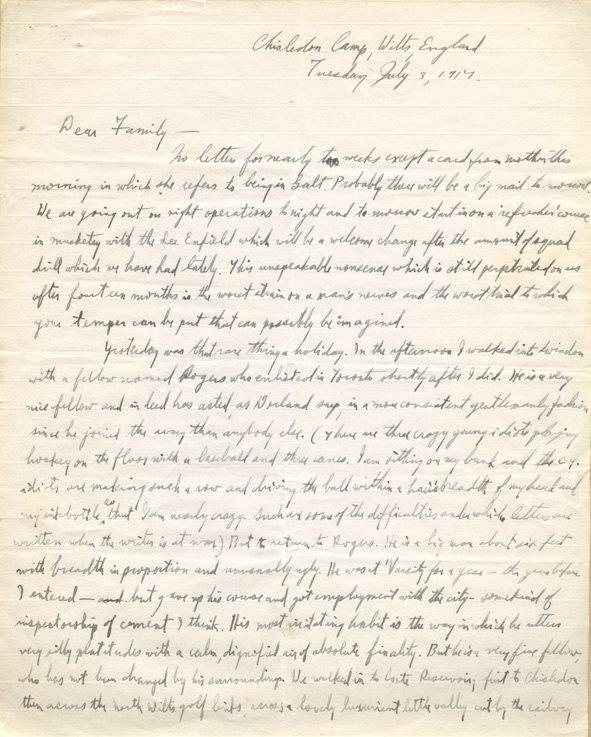 Chisledon Camp, Wilts, England
Tuesday July 3, 1917.
Dear Family —
No letter for nearly two weeks except a card from mother this
morning in which she refers to being in Galt. Probably there will be a big mail to-morrow.
We are going out on night operations to night and to morrow start in on a 'refresher' course
in musketry with the Lee Enfield which will be a welcome change after the amount of squad
drill which we have had lately. This unspeakable nonsense which is still perpetrated on us
after fourteen months is the worst strain on a man's nerves and the worst trial to which
your temper can be put that can possibly be imagined.
Yesterday was that rare thing a holiday. In the afternoon I walked into Swindon
with a fellow named Rogers who enlisted in Toronto shortly after I did. He is a very
nice fellow and indeed has acted, as Borland says, in a more consistent gentlemanly fashion
since he joined the army than anybody else. (There are three crazy young idiots playing
hockey on the floor with a baseball and three canes. I am sitting on my bunk and the c.y.
idiots are making such a row and driving the ball within a hairsbreadth of my head and
my ink bottle, that I am nearly crazy. Such are some of the difficulties under which letters are
written when the writer is at war) But to return to Rogers. He is a big man about six feet
with breadth in proportion and unusually ugly. He was at 'Varsity for a year — the year before
I entered — but gave up his course and got employment with the city - some kind of
inspectorship of cement I think. His most irritating habit is the way in which he utters
very silly platitudes with a calm, dignified air of absolute finality. But he is a very fine fellow,
who has not been changed by his surroundings. We walked in to Coate Reservoir, first to Chisledon
then across the north Wilts golf links, across a lovely luxuriant little valley cut by the railway